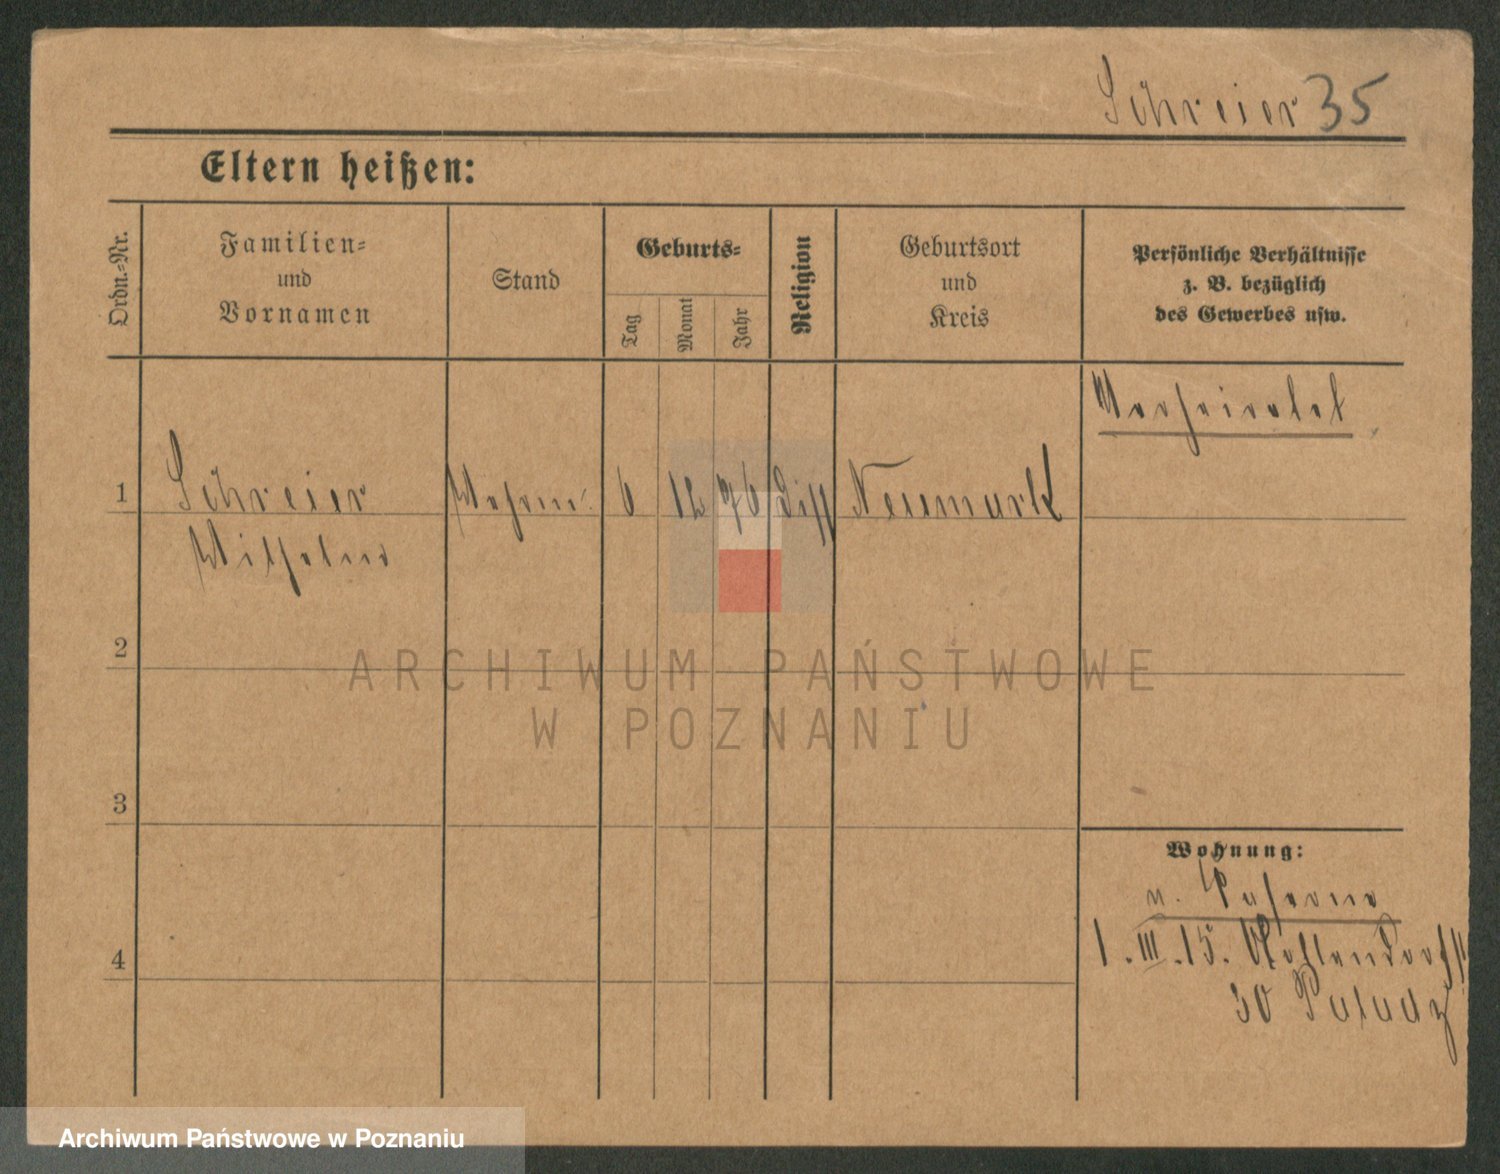 Schreier 35
Eltern heißen:
Ordn.-Nr.
Familien-
und
Vornamen
Stand
Geburts-
Tag
Monat
Jahr
Religion
Geburtsort
und
Kreis
Persönliche Verhältnisse
z. B. bezüglich
des Gewerbes usw.
Verheiratet
1
Schreier
6
12
76
diss
Neumark
Wilhelm
2
ARCHIWUM PAŃSTWOWE
W POZNANIU
3
Wohnung:
n.
4
1. III. 15.
30
Archiwum Państwowe w Poznaniu